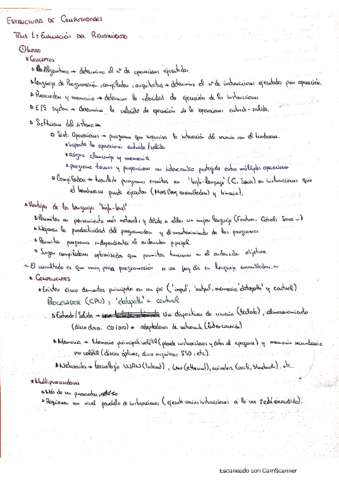 ESTRUCTURA DE COMPUTADORES
TEMA 1: EVALUACIÓN DEL RENDIMIENTO
① Intro
CONCEPTOS
Algoritmo → determina el nº de operaciones ejecutadas.
Lenguaje de Programación, compilador, arquitectura → determina el nº de instrucciones ejecutadas por operación.
Procesador y memoria → determinan la velocidad de ejecución de las instrucciones
E/S system → determina la velocidad de ejecución de las operaciones entrada-salida.
Software del sistema
Sist. Operaciones → programa que supervisa la interacción del usuario con el hardware.
Soporta la operación entrada/salida
Asigna almacenaje y memoria
programa tareas y proporciona un intercambio protegido entre múltiples operaciones
Compiladores → traslada programas escritos en "high-lenguaje" (C, Java) en instrucciones que
el hardware puede ejecutar (ensamblador y binario).
Ventajas de los lenguajes "high-level"
Permiten un pensamiento más natural y debido a ellos un mejor lenguaje (Fortran, Cobol, Java...)
Mejoran la productividad del programador y el mantenimiento de los programas.
Permite programas independientes al ordenador
Surgen compiladores optimizados que permiten funciones en el ordenador objetivo.
- El resultado es que muy poca programación se usa hoy día en lenguaje ensamblador. -
COMPONENTES
Existen cinco elementos principales en un pc ("input", "output", memoria, "datapath" y control)
PROCESADOR (CPU) = "datapath" + control
Entrada/Salida → dispositivos de usuario (teclado), almacenamiento
(disco duro, CD/DVD) adaptadores de network (Ethernet)
Memoria → Memoria principal volátil (pierde instrucciones y datos al apagarse) y memoria secundaria
no volátil (discos ópticos, disco magnético SSD, etc).
Networks → tecnología WAN (Internet), LAN (ethernet), wireless (wifi, bluetooth), etc.
Multiprocesadores
Más de un procesador
Requieren un nivel paralelo de instrucciones (ejecuta varias instrucciones a la vez).
Escaneado con CamScanner